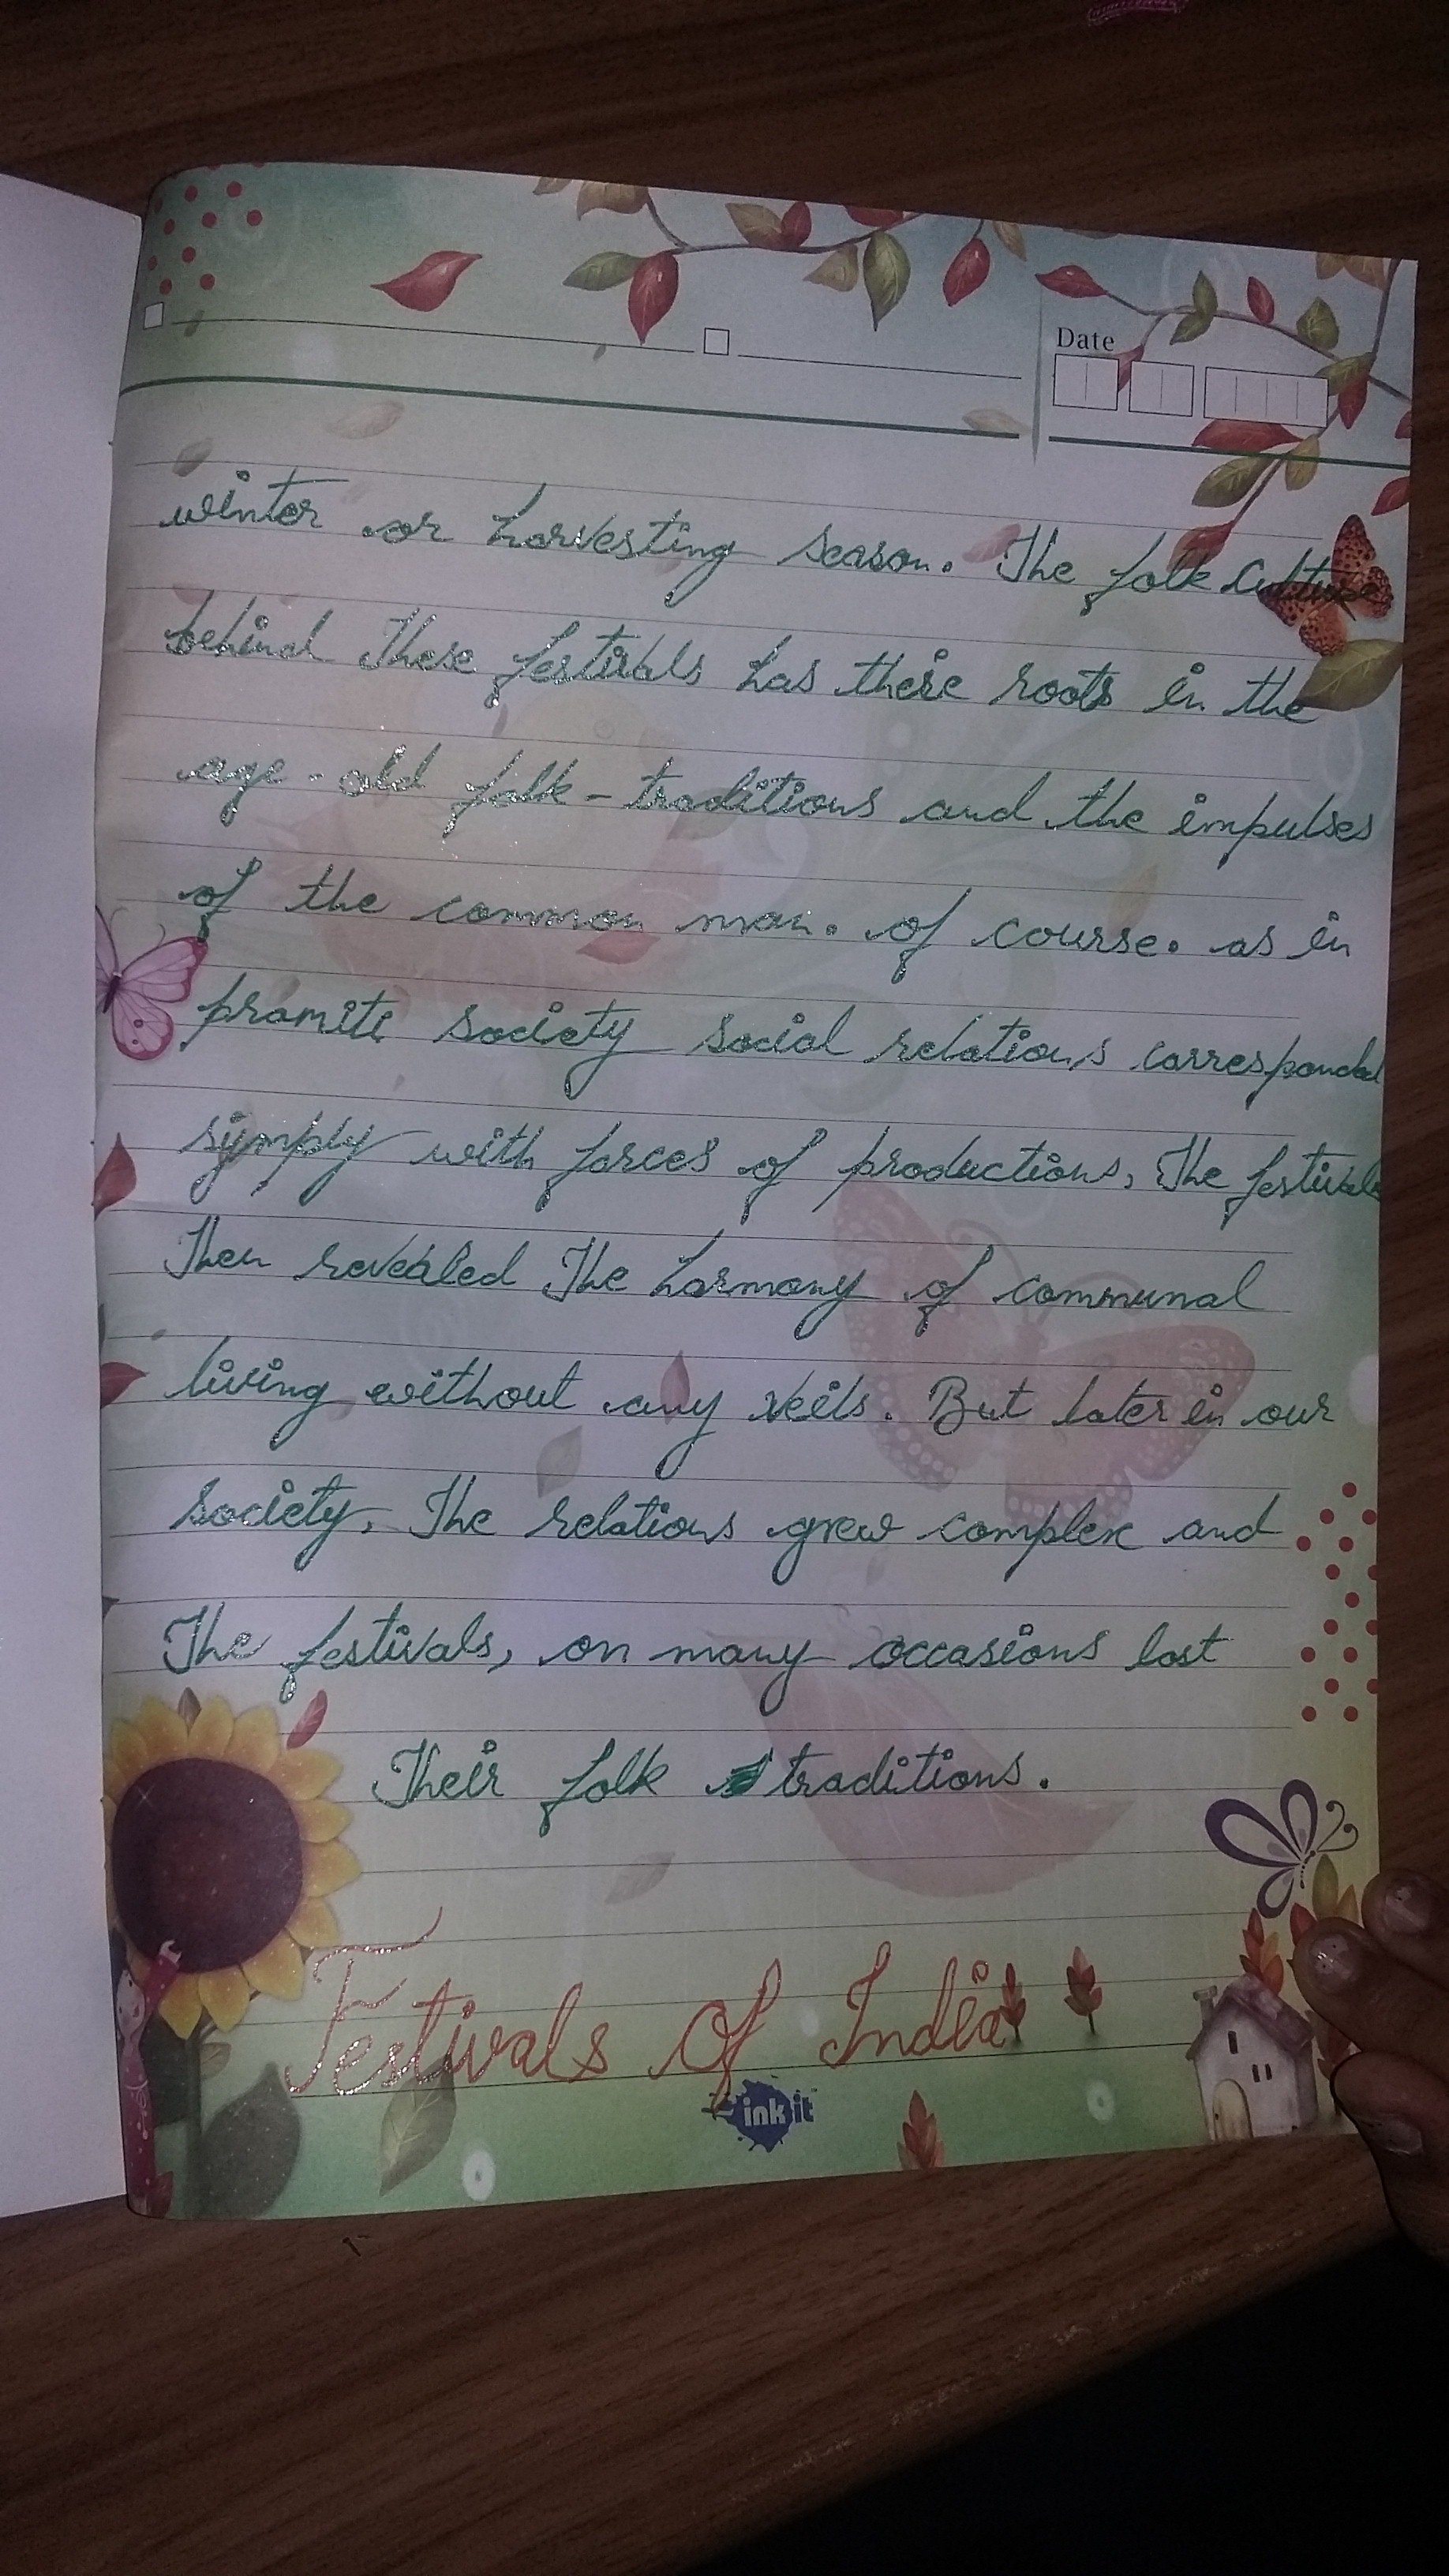 Date
winter or harvesting season. The folk culture
behind These festivals has there roots in the
age-old folk-traditions and the impulses
of the common man. of course. as in
promite society social relations corresponded
symply with forces of productions, The festivals
Then revealed The harmony of communal
living without any veils. But later in our
society, The relations grew complex and
The festivals, on many occasions lost
Their folk traditions.
Festivals Of India
ink it